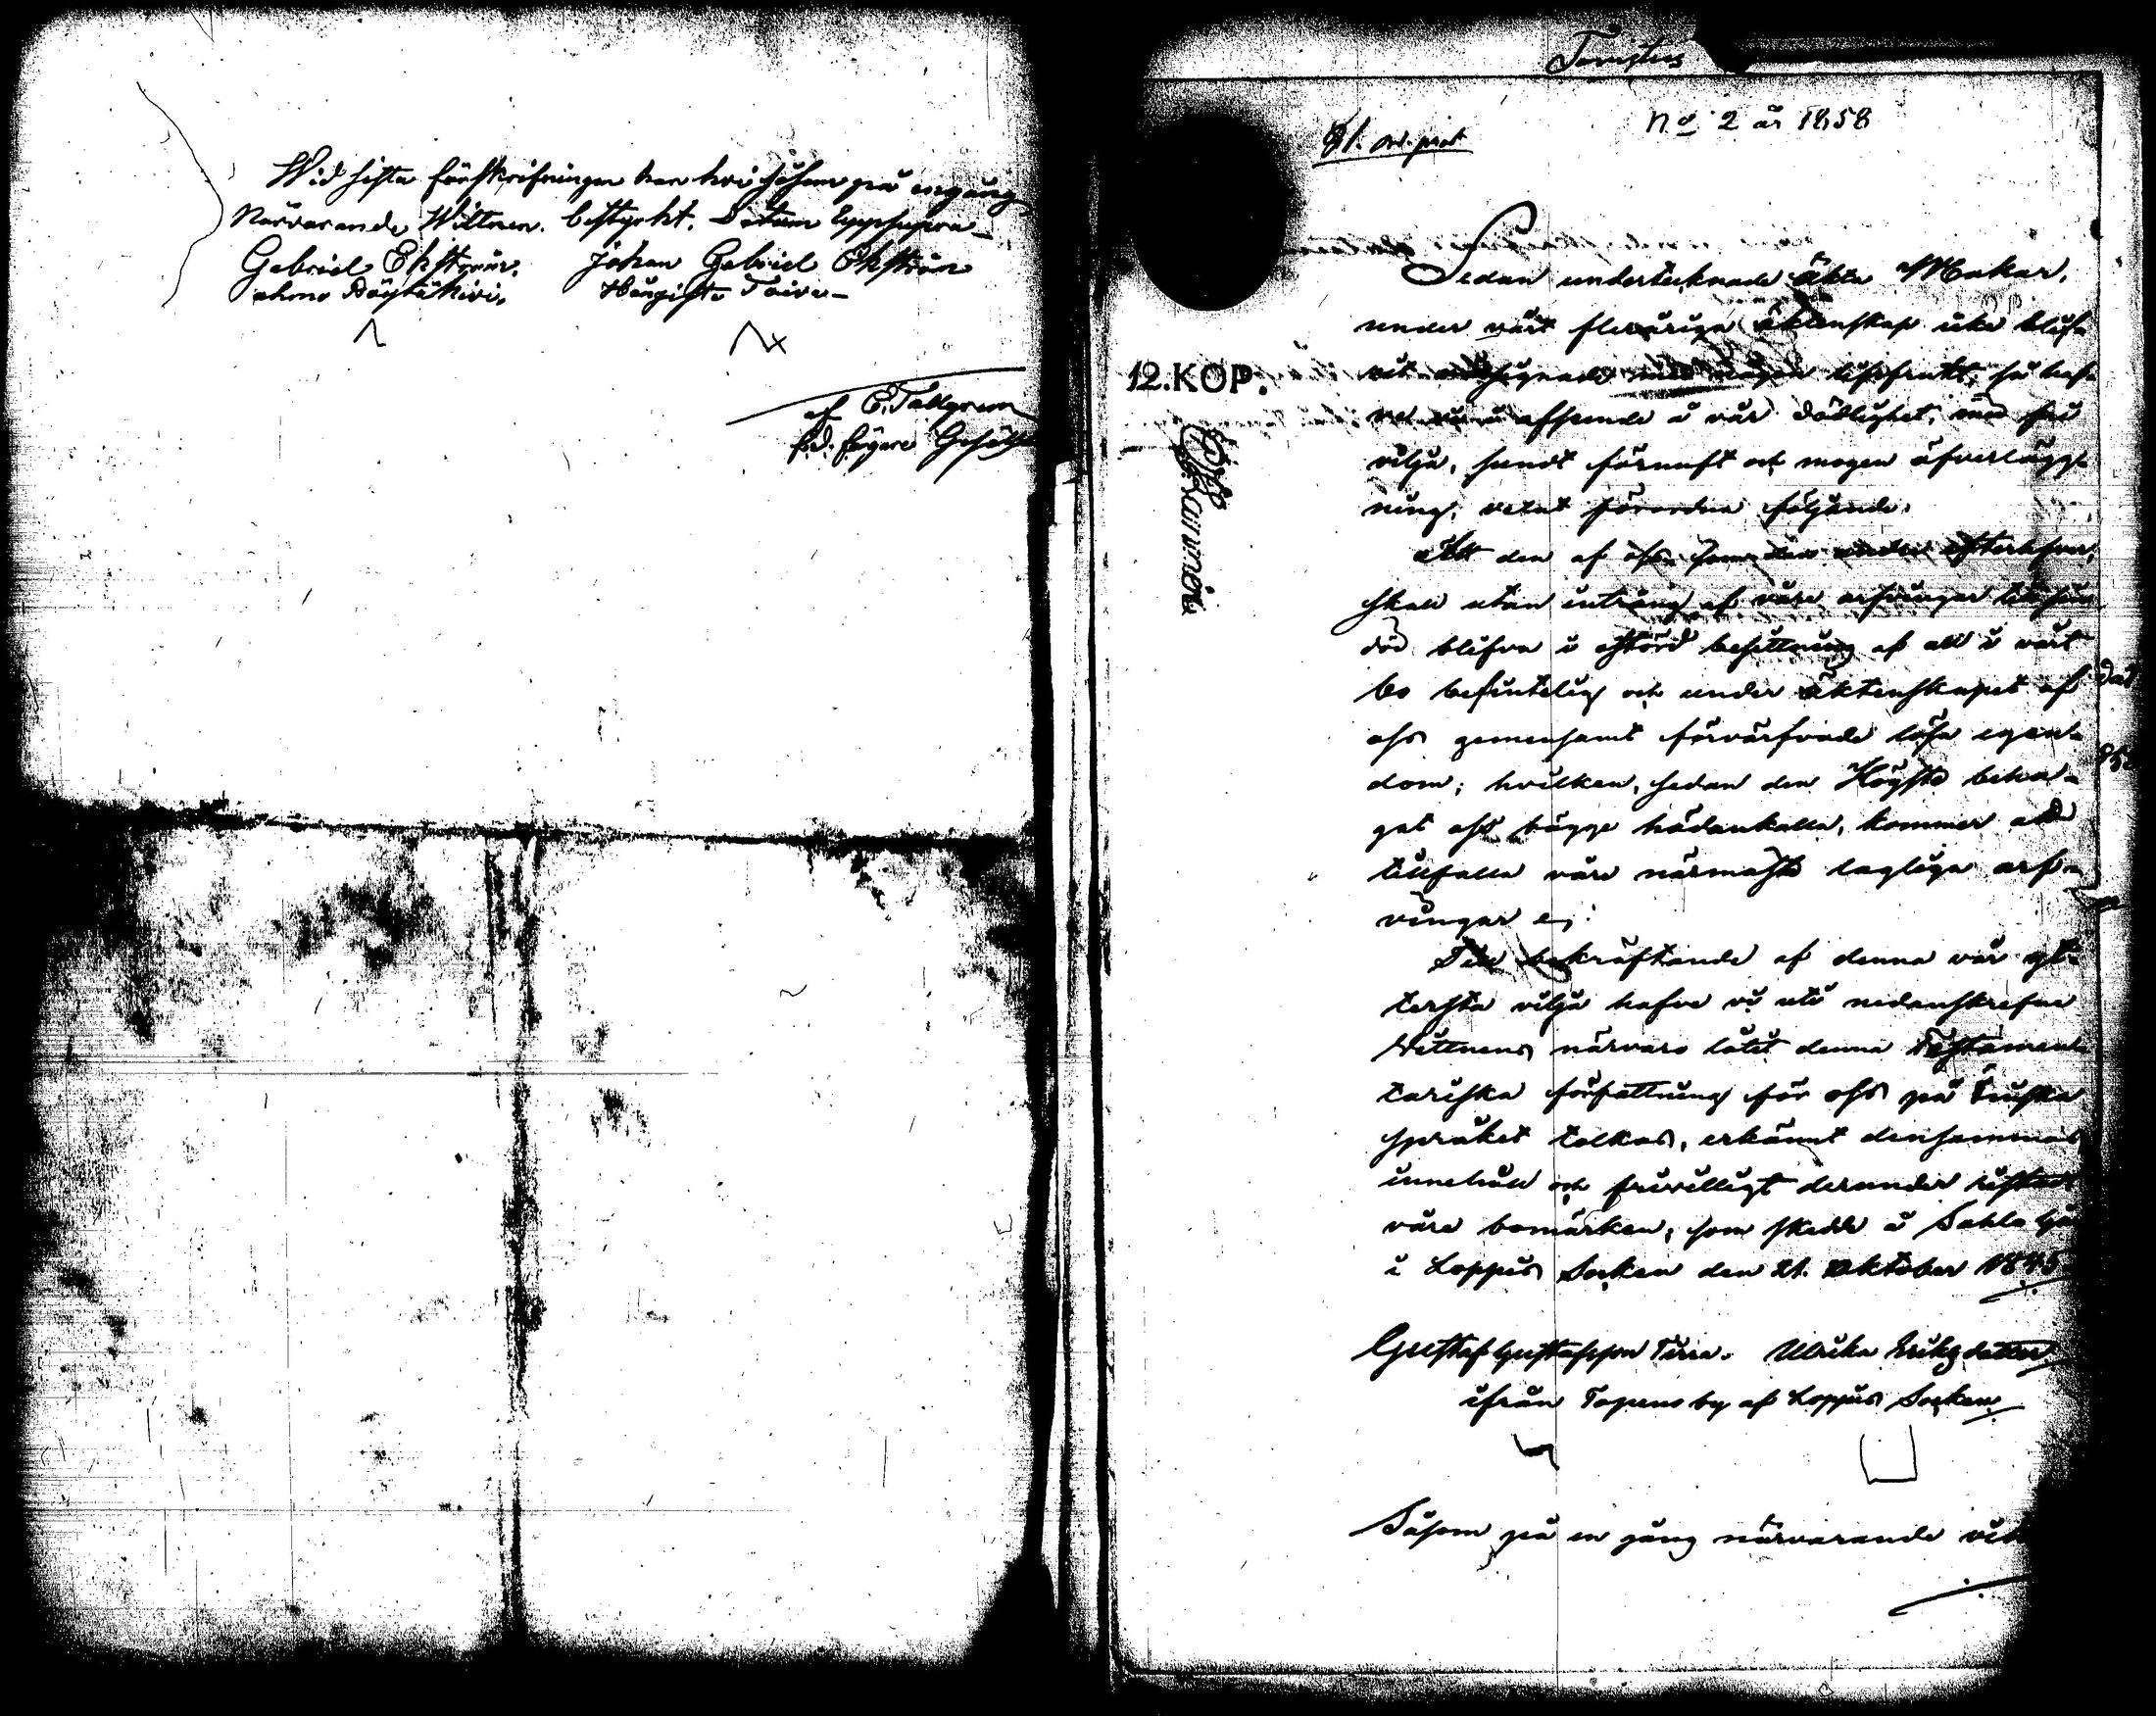 Wid sista förskrifningen har hvi såsom på engång
Närvarande Wittnen. bestyrkt. Datum
Gabriel Ekström. Johan Gabriel Ekström
af C. Tallgren
No 2 år 1858
Sedan undertecknade äkta Makar,
under vårt fleråriga äktenskap icke blif-
vit lifsfrukt, så haf-
afseende å vår dödlighet, med fri
vilja, sundt förnuft och mogen öfverlägg-
ning, velat förordna följande.
Att den af oss som den andra efterlefver,
skall utan intrång af våre arfvingar
död blifva i ostörd besittning af all i vårt
bo befintelig och under äktenskapet af
oss gemensamt förvärfvade lösa egen-
dom; hvilken, sedan den Högste beha-
gat oss bägge hädankalla, kommer att
tillfalla våre närmaste laglige arf-
vingar
Till bekräftande af denna vår yt-
tersta vilja hafve vi uti nedanskrefne
Vittnens närvaro låtit denna Testamen-
tariska författning för oss på finska
språket tolkas, erkännt densammas
innehåll och frivilligt derunder ristat
våre bomärken, som skedde å Sahla
i Loppis Socken den 21. Oktober 1845
Gustaf Gustafsson Ulrika Eriksdotter
ifrån Topeno by af Loppis Socken
Såsom på en gång närvarande
12.KOP.